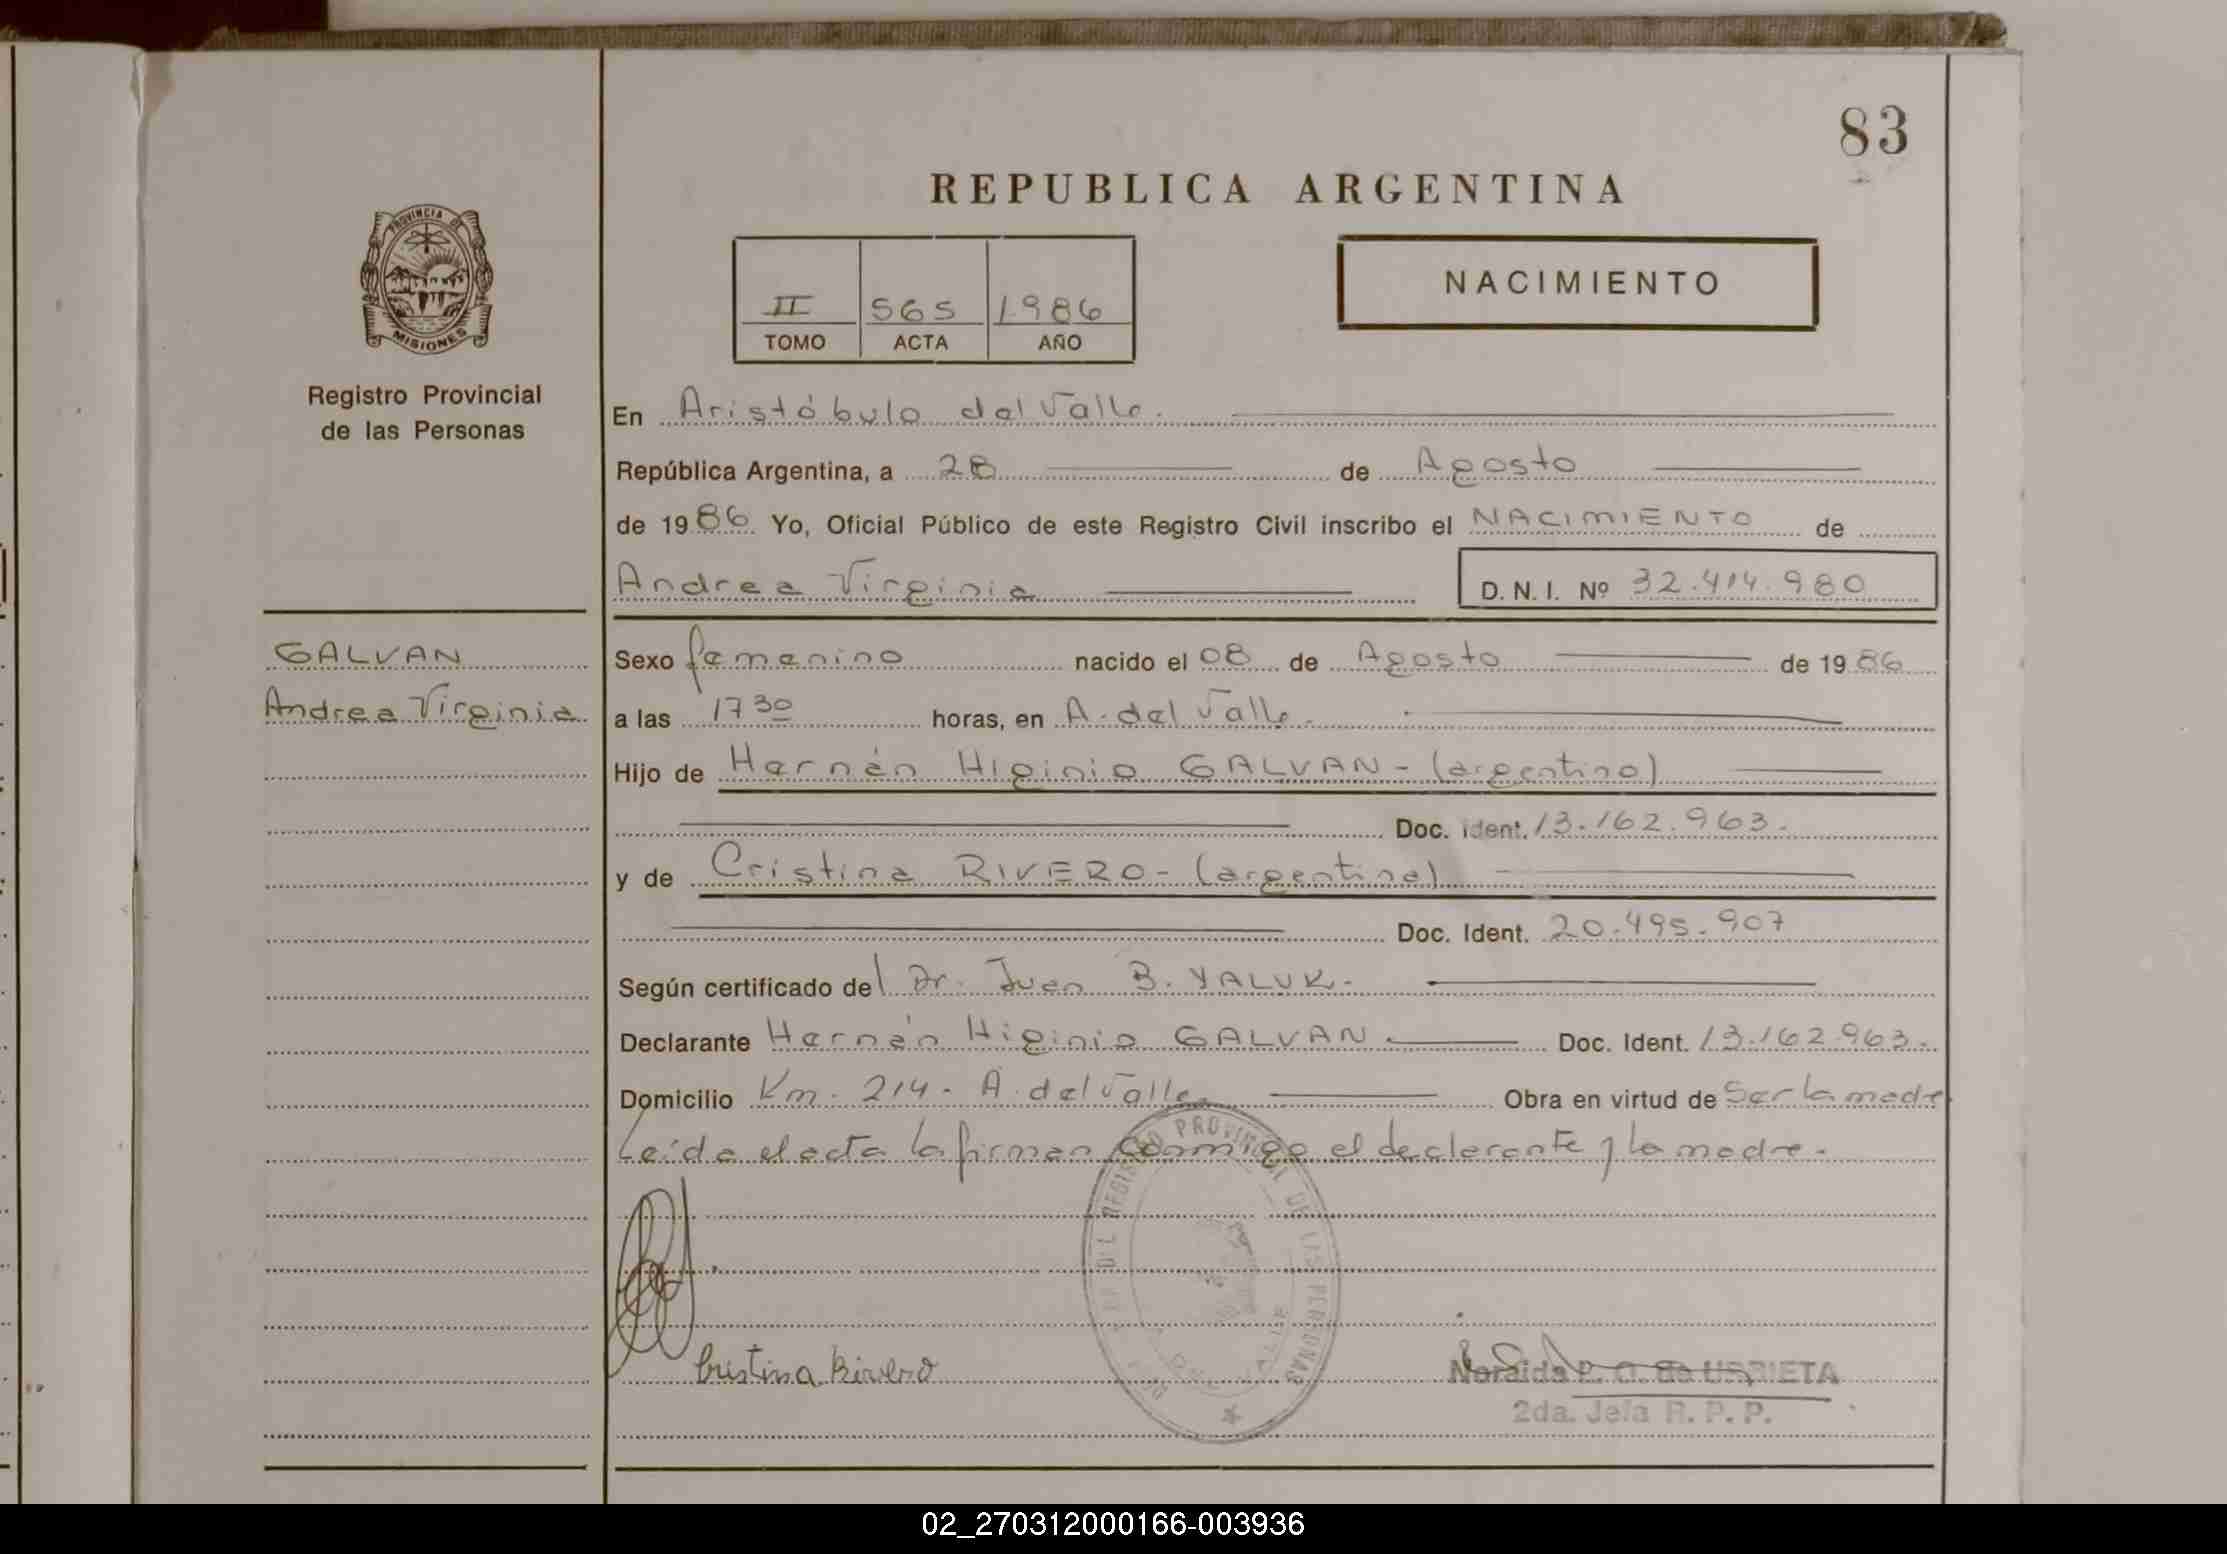 83
REPUBLICA ARGENTINA
PROVINCIA DE
MISIONES
Registro Provincial
de las Personas
II 565 1986
TOMO ACTA AÑO
NACIMIENTO
En Aristóbulo del Valle.
República Argentina, a 28 de Agosto
de 1986 Yo, Oficial Público de este Registro Civil inscribo el NACIMIENTO de
Andrea Virginia D. N. I. Nº 32.414.980
GALVAN
Andrea Virginia
Sexo femenino nacido el 08 de Agosto de 1986
a las 17 30 horas, en A. del Valle.
Hijo de Hernán Higinio GALVAN - (argentino)
Doc. ident. 13.162.963.
y de Cristina RIVERO - (argentina)
Doc. Ident. 20.495.907
Según certificado del Dr. Juan B. YALUK.
Declarante Hernán Higinio GALVAN Doc. Ident. 13.162.963.
Domicilio Km. 214 - A. del Valle Obra en virtud de Ser la madre
Leída el acta la firman conmigo el declarante y la madre.
REGISTRO PROVINCIAL DE LAS PERSONAS
Cristina Rivero
Noraida E. O. de URRIETA
2da. Jefa R. P. P.
02_270312000166-003936